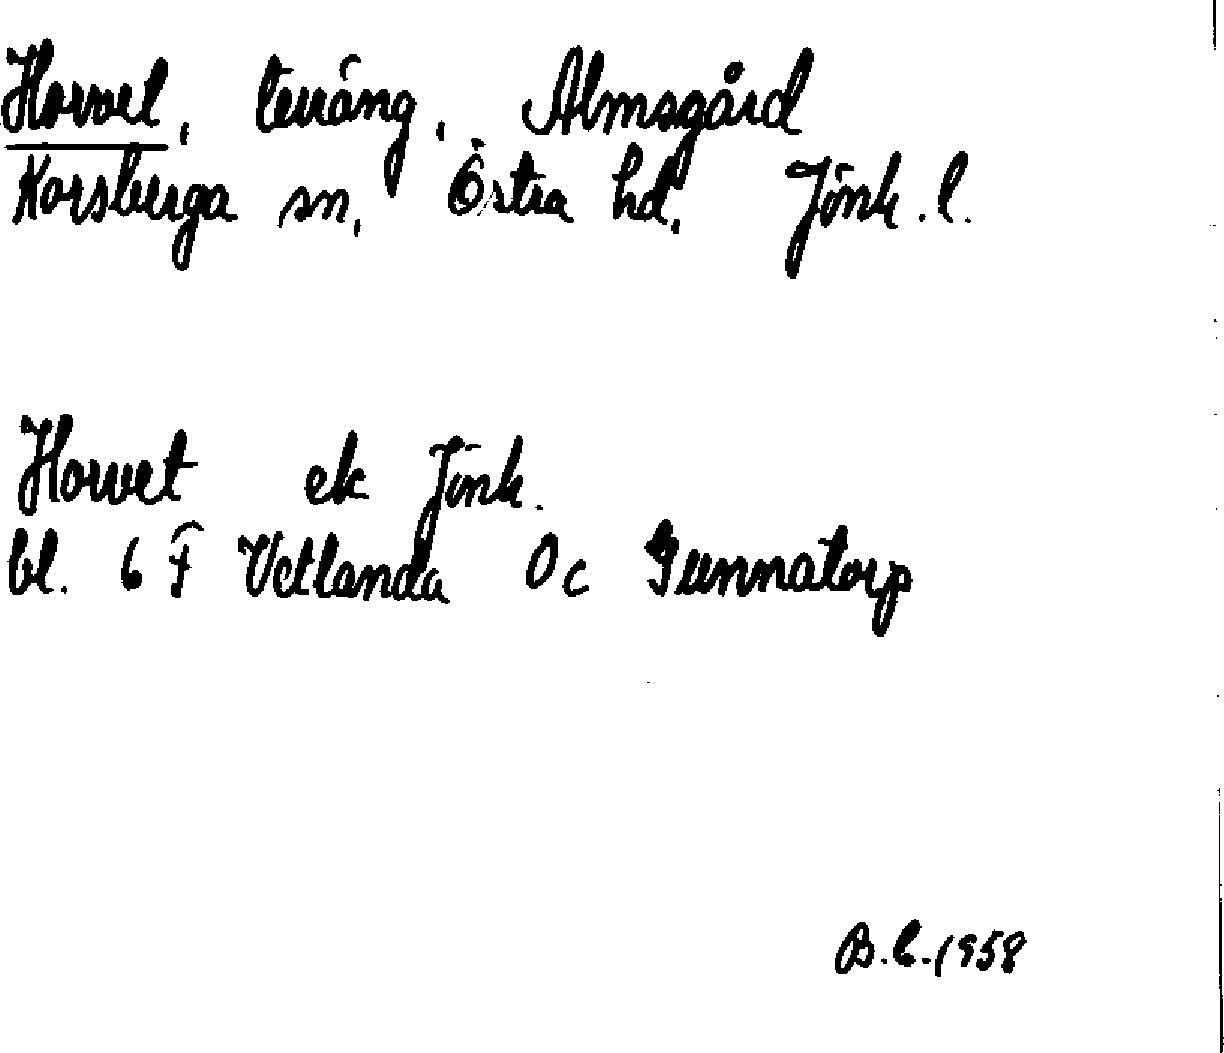 Horvet, terräng, Almsgård
Korsberga sn, Östra hd, Jönk. l.
Horvet ek Jönk.
bl. 6 F Vetlanda 0 c Gunnatorp
B.C. 1958